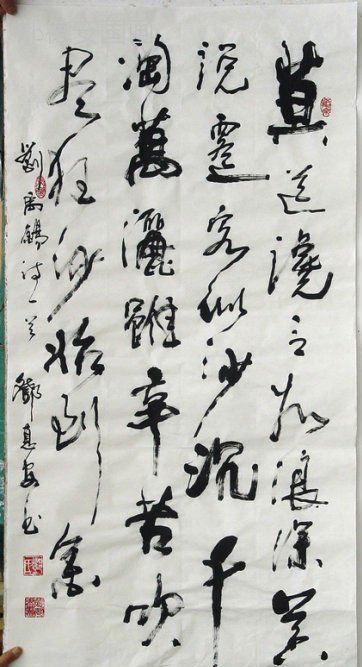 莫道讒言如浪深莫
説遷客似沙沉千
淘萬灑雖辛苦吹
盡狂沙始到金
劉禹錫诗一首 鄧惠安书